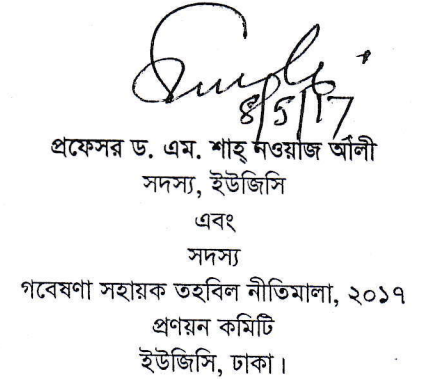 8/5/17
প্রফেসর ড. এম. শাহ্ নওয়াজ আলী
সদস্য, ইউজিসি
এবং
সদস্য
গবেষণা সহায়ক তহবিল নীতিমালা, ২০১৭
প্রণয়ন কমিটি
ইউজিসি, ঢাকা।